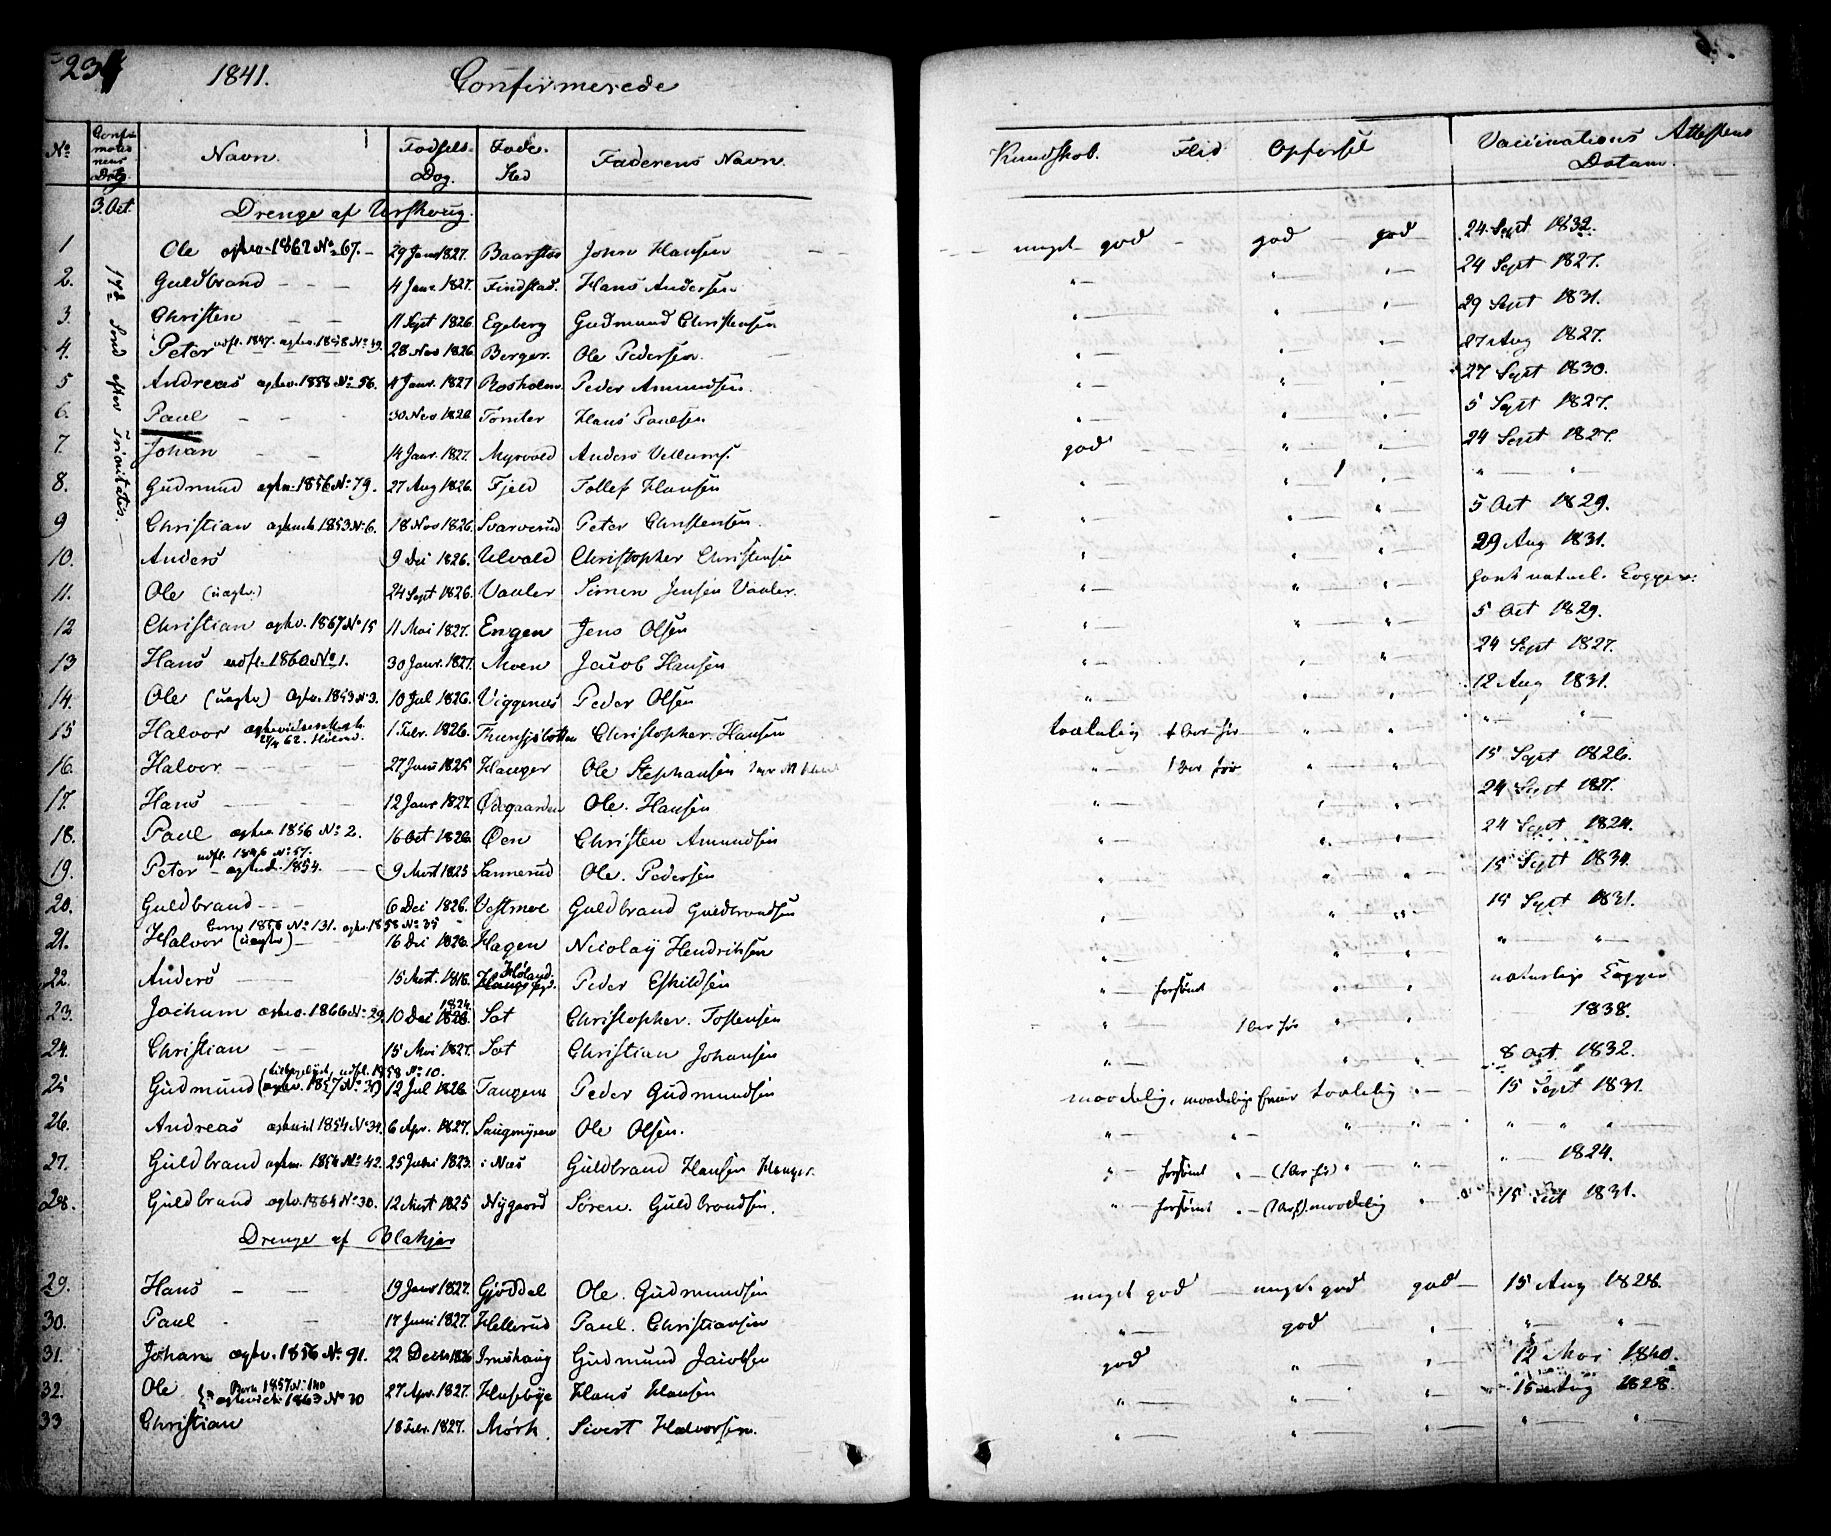 234 1841. Confirmerede
No Confirmations Datg Navn. Fødsels-Dag. Føde-Sted Faderens Navn. Kundskab. Flid Opførsel Vaccinations Attestens Datum.
3. Oct. Drenge af Urskoug.
17de Sønd efter Trinitatis.
1 Ole 1862 No 67. 29 Janr 1827. John Hansen meget god god god 24 Sept 1832.
2. Guldbrand 4 Janr 1827. Findstad. Hans Andersen " " " 24 Sept 1827.
3. Christen 11 Sept 1826. Egeberg Gudmund Christensen " " " 29 Sept 1831.
4. Peter udfl. 1847. 1858 No 49. 28 Nov 1826. Berger. Ole Pedersen " " " 27 Aug 1827.
5 Andreas 1858 No 56. 4 Janr. 1827 Rosholm Peder Amundsen. " " " 27 Sept 1830.
6. Paul 30 Nov 1826 Tomter Hans Paulsen " " " 5 Sept 1827.
7. Johan 14 Janr. 1827. Myrvold Anders god " " 24 Sept 1827.
8. Gudmund 1856 No 79. 27 Aug 1826. Fjeld Tollef Hansen " " " "
9 Christian 1853 No 6. 18 Nov 1826. Svarverud Peter Christensen. " " " 5 Oct 1829.
10. Anders 9 Dec 1826. Ulvald Christopher Christensen " " " 29 Aug 1831.
11. Ole (uægte.) 24 Sept 1826. Vaaler Simen Jensen Vaaler. " " " havt naturl. Kopper.
12 Christian 1867 No 15 11 Mai 1827. Engen Jens Olsen " " " 5 Oct 1829.
13 Hans udfl. 1860 No 1. 30 Janr. 1827. Moen Jacob Hansen " " " 24 Sept 1827.
14. Ole (uægte) 1853 No 3. 10 Jul 1826. Viggenæs Peder Olsen " " " 12 Aug 1831.
15 Halvor 62. 1 Febr. 1826. Christopher Hansen taalelig " " " "
16. Halvor 27 Juni 1825 Hanger Ole Stephansen " " " 15 Sept 1826.
17. Hans 12 Janr 1827. Ødegaarden Ole Hansen " " " 24 Sept 1827.
18. Paul 1856 No 2. 16 Oct 1826. Øen Christen Amundsen " " " 24 Sept 1824.
19. Peter udfl. 1846 No 57. 1854. 9 Mart 1825 Sannerud Ole Pedersen " " " 15 Sept 1834.
20. Guldbrand 6 Dec 1826. Vestmoe Guldbrand Guldbrandsen " " " 15 Sept 1831.
21. Halvor (uægte) 1856 No 131. 1858 No 35 16 Dec 1826. Hagen Nicolay Hendriksen " " " "
22. Anders 15 Mart. 1816. Høland. Peder Eskildsen " forsømt " " naturlige Kopper
23. Jochum 1866 No 29. 10 Dec 1824 Sot Christopher Tostensen " " " 1838.
24. Christian 15 Mai 1827. Sot Christian Johansen " " " 8 Oct. 1832.
25 Gudmund 1857 No 31) udfl. 1858 No 10. 12 Jul 1826 Tangen Peder Gudmundsen maadelig, maadelig taalelig " 15 Sept 1831.
26. Andreas 1854 No 34. 6 Apr. 1827. Ole Olsen. " " " " "
27. Guldbrand 1854 No 42. 25 Juni 1823. i Næs Guldbrand Hansen Hanger. " forsømt " " 1824.
28. Guldbrand 1864 No 30. 12 Mart 1825 Nygaard Søren Guldbrandsen. " forsømt maadelig " 15 Oct 1831.
Drenge af Blakjer
29. Hans 19 Janr 1827. Gjøddal Ole Gudmundsen meget god meget god god 15 Aug 1828.
30. Paul 17 Juni 1827. Hellerud Paul Christiansen " god " " "
31. Johan 1856 No 91. 22 Decbr 1826 Gudmund Jacobsen god " " 12 Mai 1840.
32. Ole Barn 1857 No 140 1863 No 30 27 Apr. 1827. Husebye Hans Hansen " " " 15 Aug 1828.
33 Christian 18 Febr. 1827. Mørk. Sivert Halvorsen. " " " " "